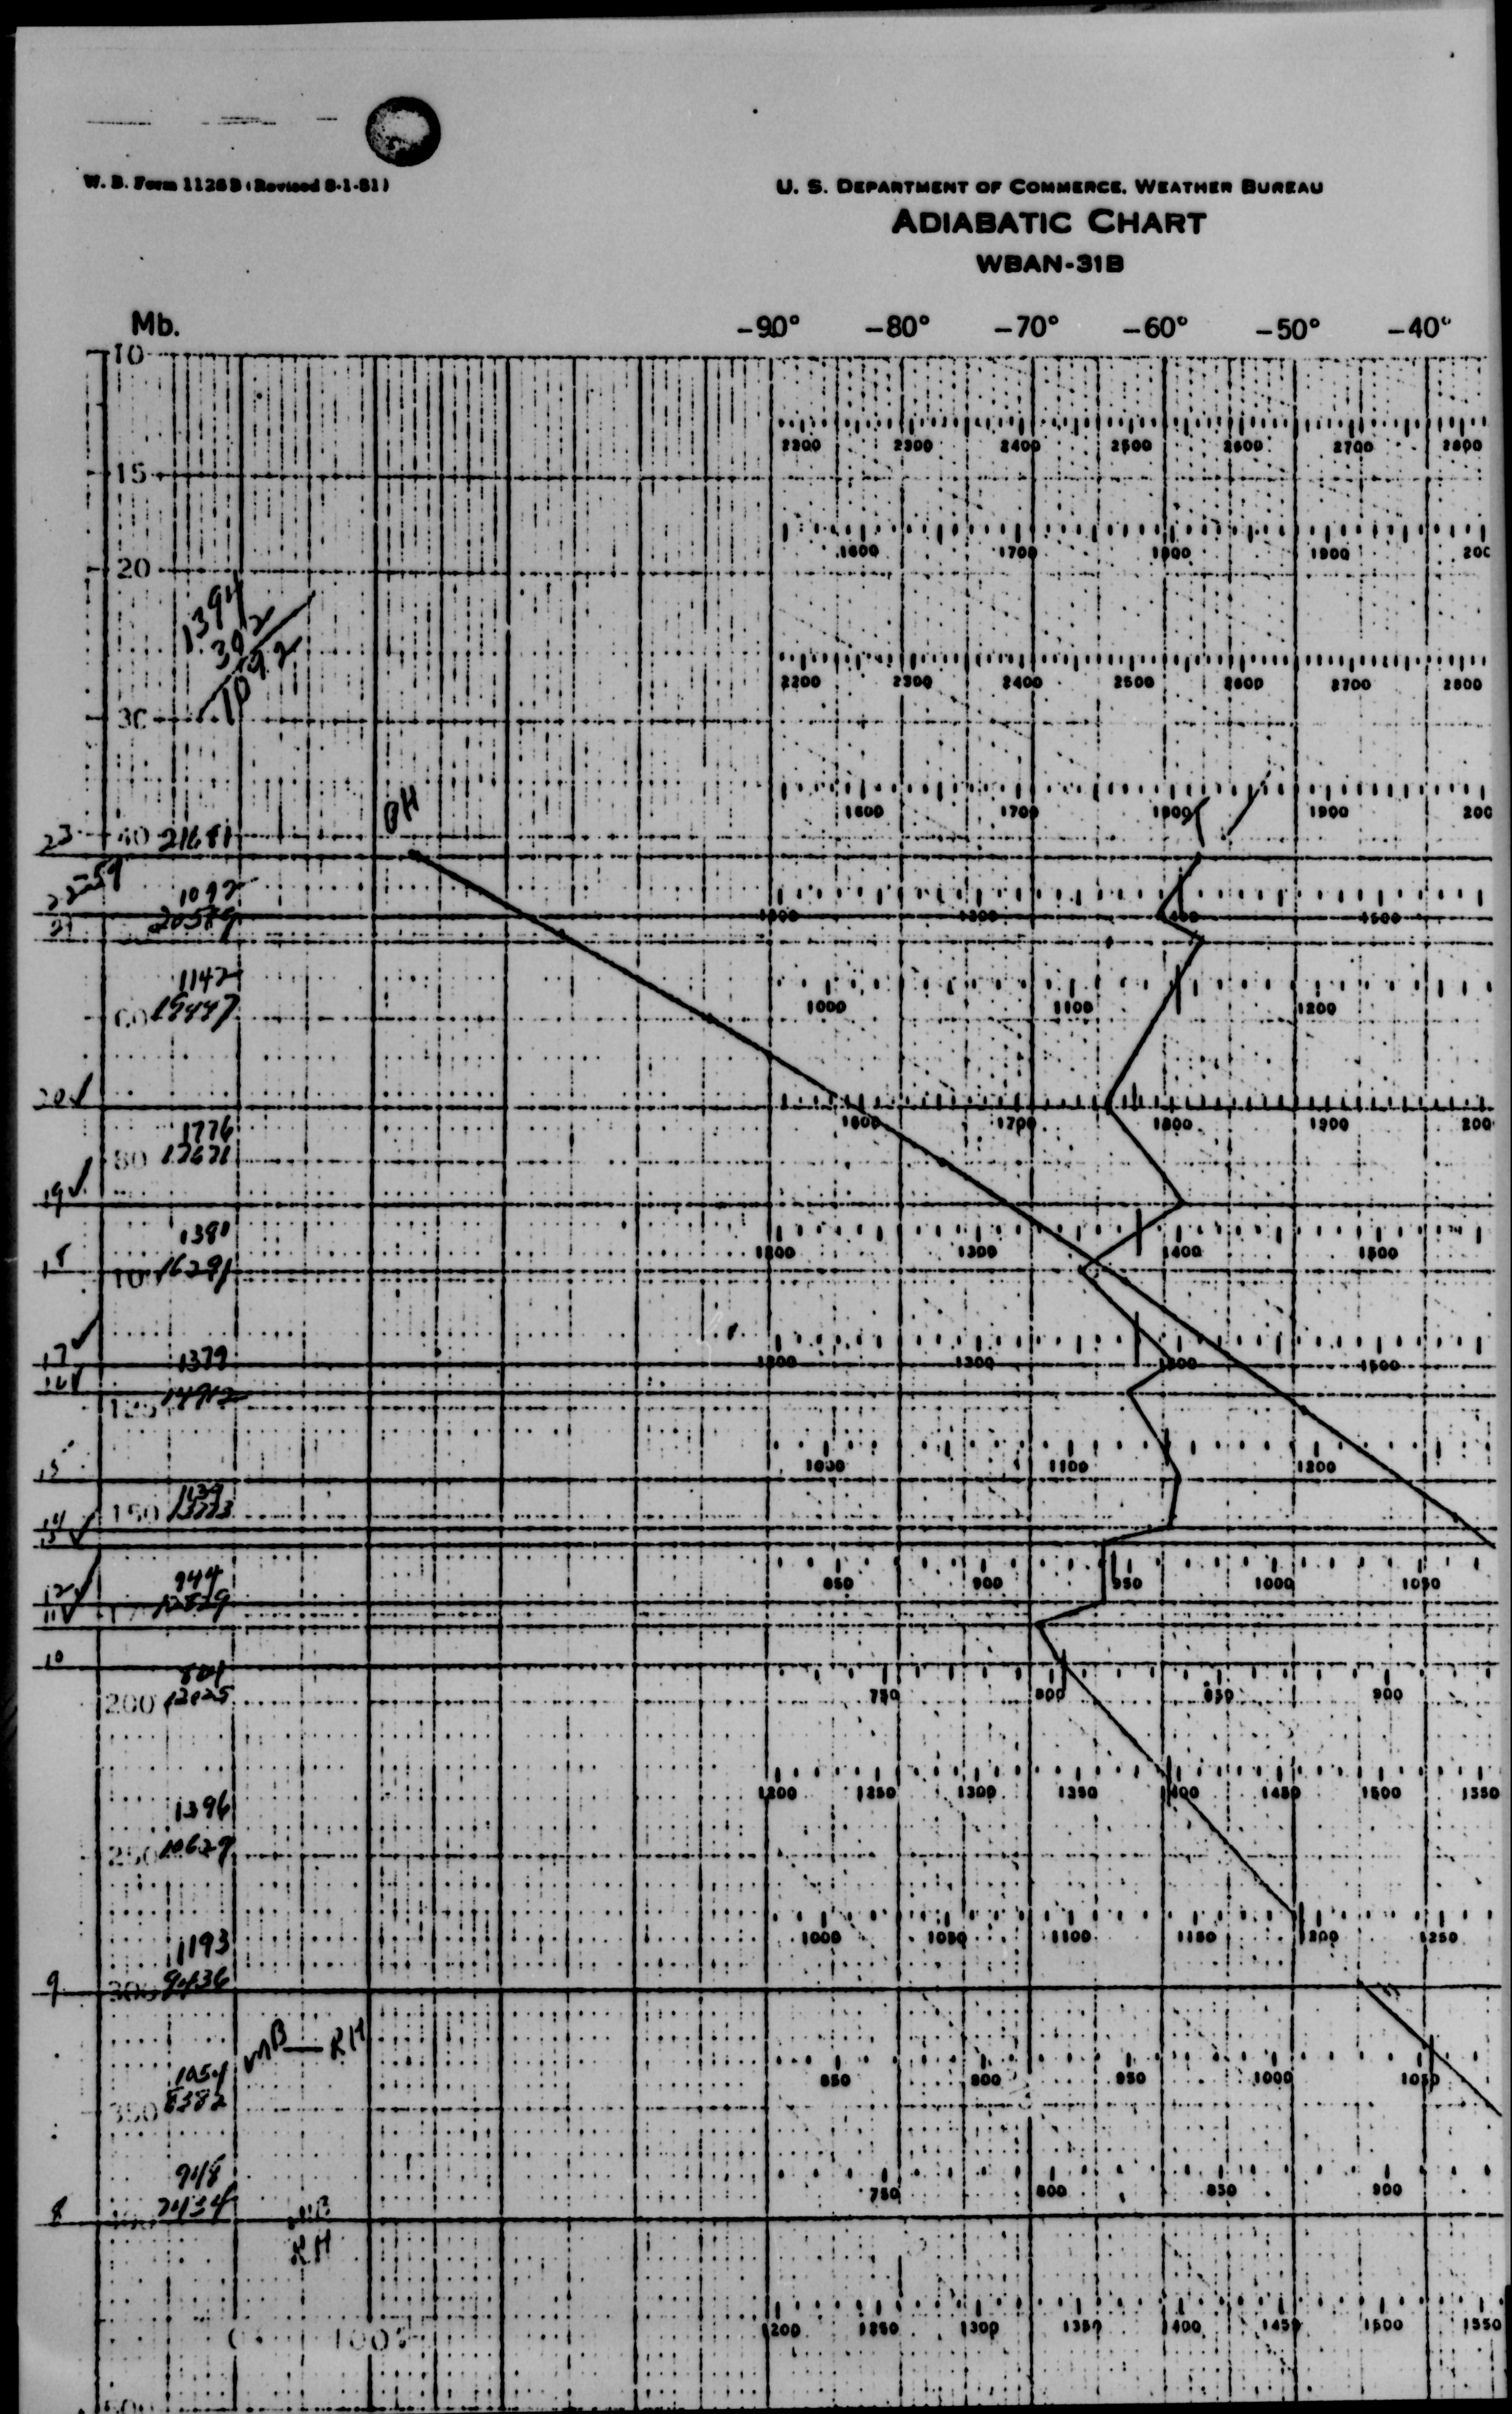 W. B. Form 1126B (Revised 8-1-61)
U. S. DEPARTMENT OF COMMERCE, WEATHER BUREAU
ADIABATIC CHART
WBAN-31B
Mb. -90° -80° -70° -60° -50° -40°
10
2200 2300 2400 2500 2600 2700 2800
15
1600 1700 1800 1900 200
20
1394
302
1092
2200 2300 2400 2500 2600 2700 2800
30
1600 1700 1800 1900 200
PH
23 40 21681
22 59
1092
21 20589
1300 1500
1142
1000 1100 1200
60 19447
20✓
1600 1700 1800 1900 200
1776
80 17671
19✓
1380
1300 1400 1500
18 16291
17✓ 1379
1300 1500
16✓
125 14912
1000 1100 1200
15
1139
150 13773
14✓
13
944
850 900 950 1000 1050
12✓ 12829
11✓
10
804
200 12025 750 800 850 900
1396
1200 1250 1300 1350 1400 1450 1500 1550
250 10629
1193
1000 1050 1100 1150 1200 1250
9 300 9436
MB — RH
1054
850 900 950 1000 1050
350 8382
948
750 800 850 900
8 7434
MB
RH
1200 1250 1300 1350 1400 1450 1500 1550
0 100%
500